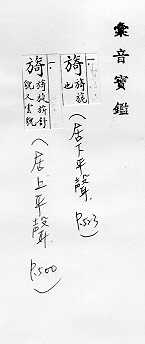 彙音寶鑑
旖 旖旎也
（居下平聲 P.523）
旖 旖旎旌舒貌又雲貌
（居上平聲 P.500）